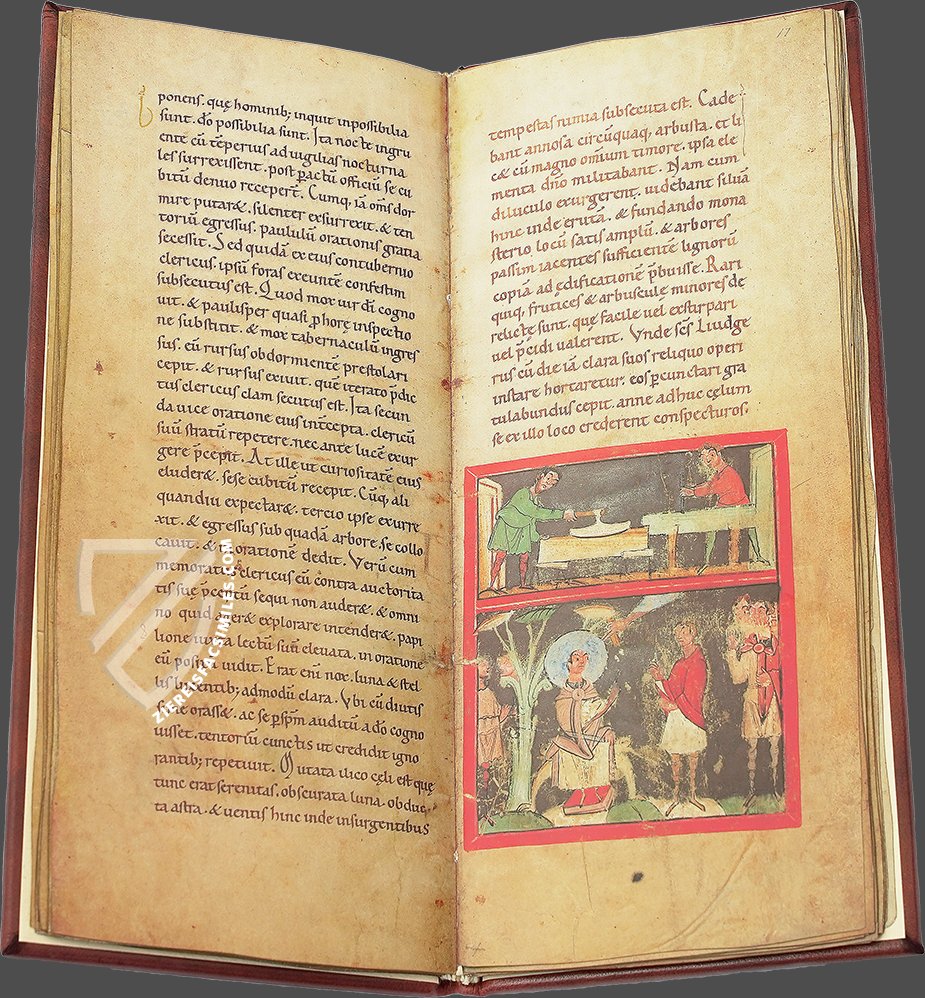 ponens. quę hominib; inquit inpossibilia
sunt. dō possibilia sunt. Ita nocte ingru
ente cū tēperius ad uigilias nocturna
les surrexissent. post pactū officiū se cu
bitū denuo recepert̄. Cumq, iā oms̄ dor
mire putar&. silenter exsurrexit. & ten
toriū egressus. paululū orationis gratia
secessit. Sed quidā ex eius contubernio
clericus. ipsū foras exeuntē confestim
subsecutus est. Quod mox uir dī cogno
uit. & paulisper quasi phorę inspectio
ne substitit. & mox tabernaculū ingres
sus. eū rursus obdormientē prestolari
cepit. & rursus exiuit. quē iterato pdic
tus clericus clam secutus est. Ita secun
da uice oratione eius intcepta. clericū
suū stratū repetere. nec ante lucē exur
gere pcepit. At ille ut curiositatē eius
eluder&. sese cubitū recepit. Cūq, ali
quandiu expectar&. tercio ipse exurre
xit. & egressus sub quadā arbore. se collo
cauit. & in orationē dedit. Verū cum
memoratus clericus eū contra auctorita
tis suę pceptū sequi non auder&. & omni
no quid ager& explorare intender&. papi
lione iuxta lectū suū eleuata. in oratione
eū positū uidit. Erat enī nox. luna & stel
lis lucentib; admodū clara. Vbi cū diutis
sime orass&. ac se pspm̄ auditū a dō cogno
uisset. tentoriū cunctis ut credidit igno
rantib; repetiuit. Mutata ilico cęli est que
tunc erat serenitas. obscurata luna. obduc
ta astra. & uentis hinc inde insurgentibus
17
tempestas nimia subsecuta est. Cade
bant annosa circūquaq, arbusta. et li
c& cū magno omium timore. ipsa ele
menta dn̄o militabant. Nam cum
diluculo exurgerent. uidebant siluā
hinc inde erutā. & fundando mona
sterio locū satis amplū. & arbores
passim iacentes sufficientē lignorū
copiā ad ędificationē pbuisse. Rari
quiq, frutices & arbusculę minores dę
relictę sunt. quę facile uel exstirpari
uel pcidi ualerent. Vnde scs̄ Liudge
rus cū die iā clara suos reliquo operi
instare hortaretur. eos pcunctari gra
tulabundus cepit. anne adhuc cęlum
se ex illo loco crederent conspecturos.
ZIEREIS FACSIMILES.COM